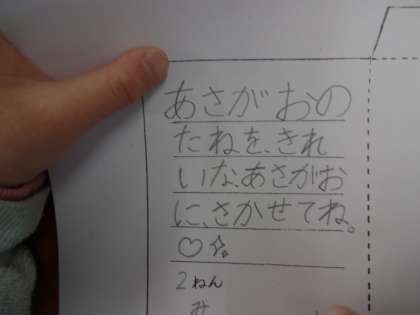 あさがおの
たねを、きれ
いな、あさがお
に、さかせてね。
♡☆。
2ねん
み